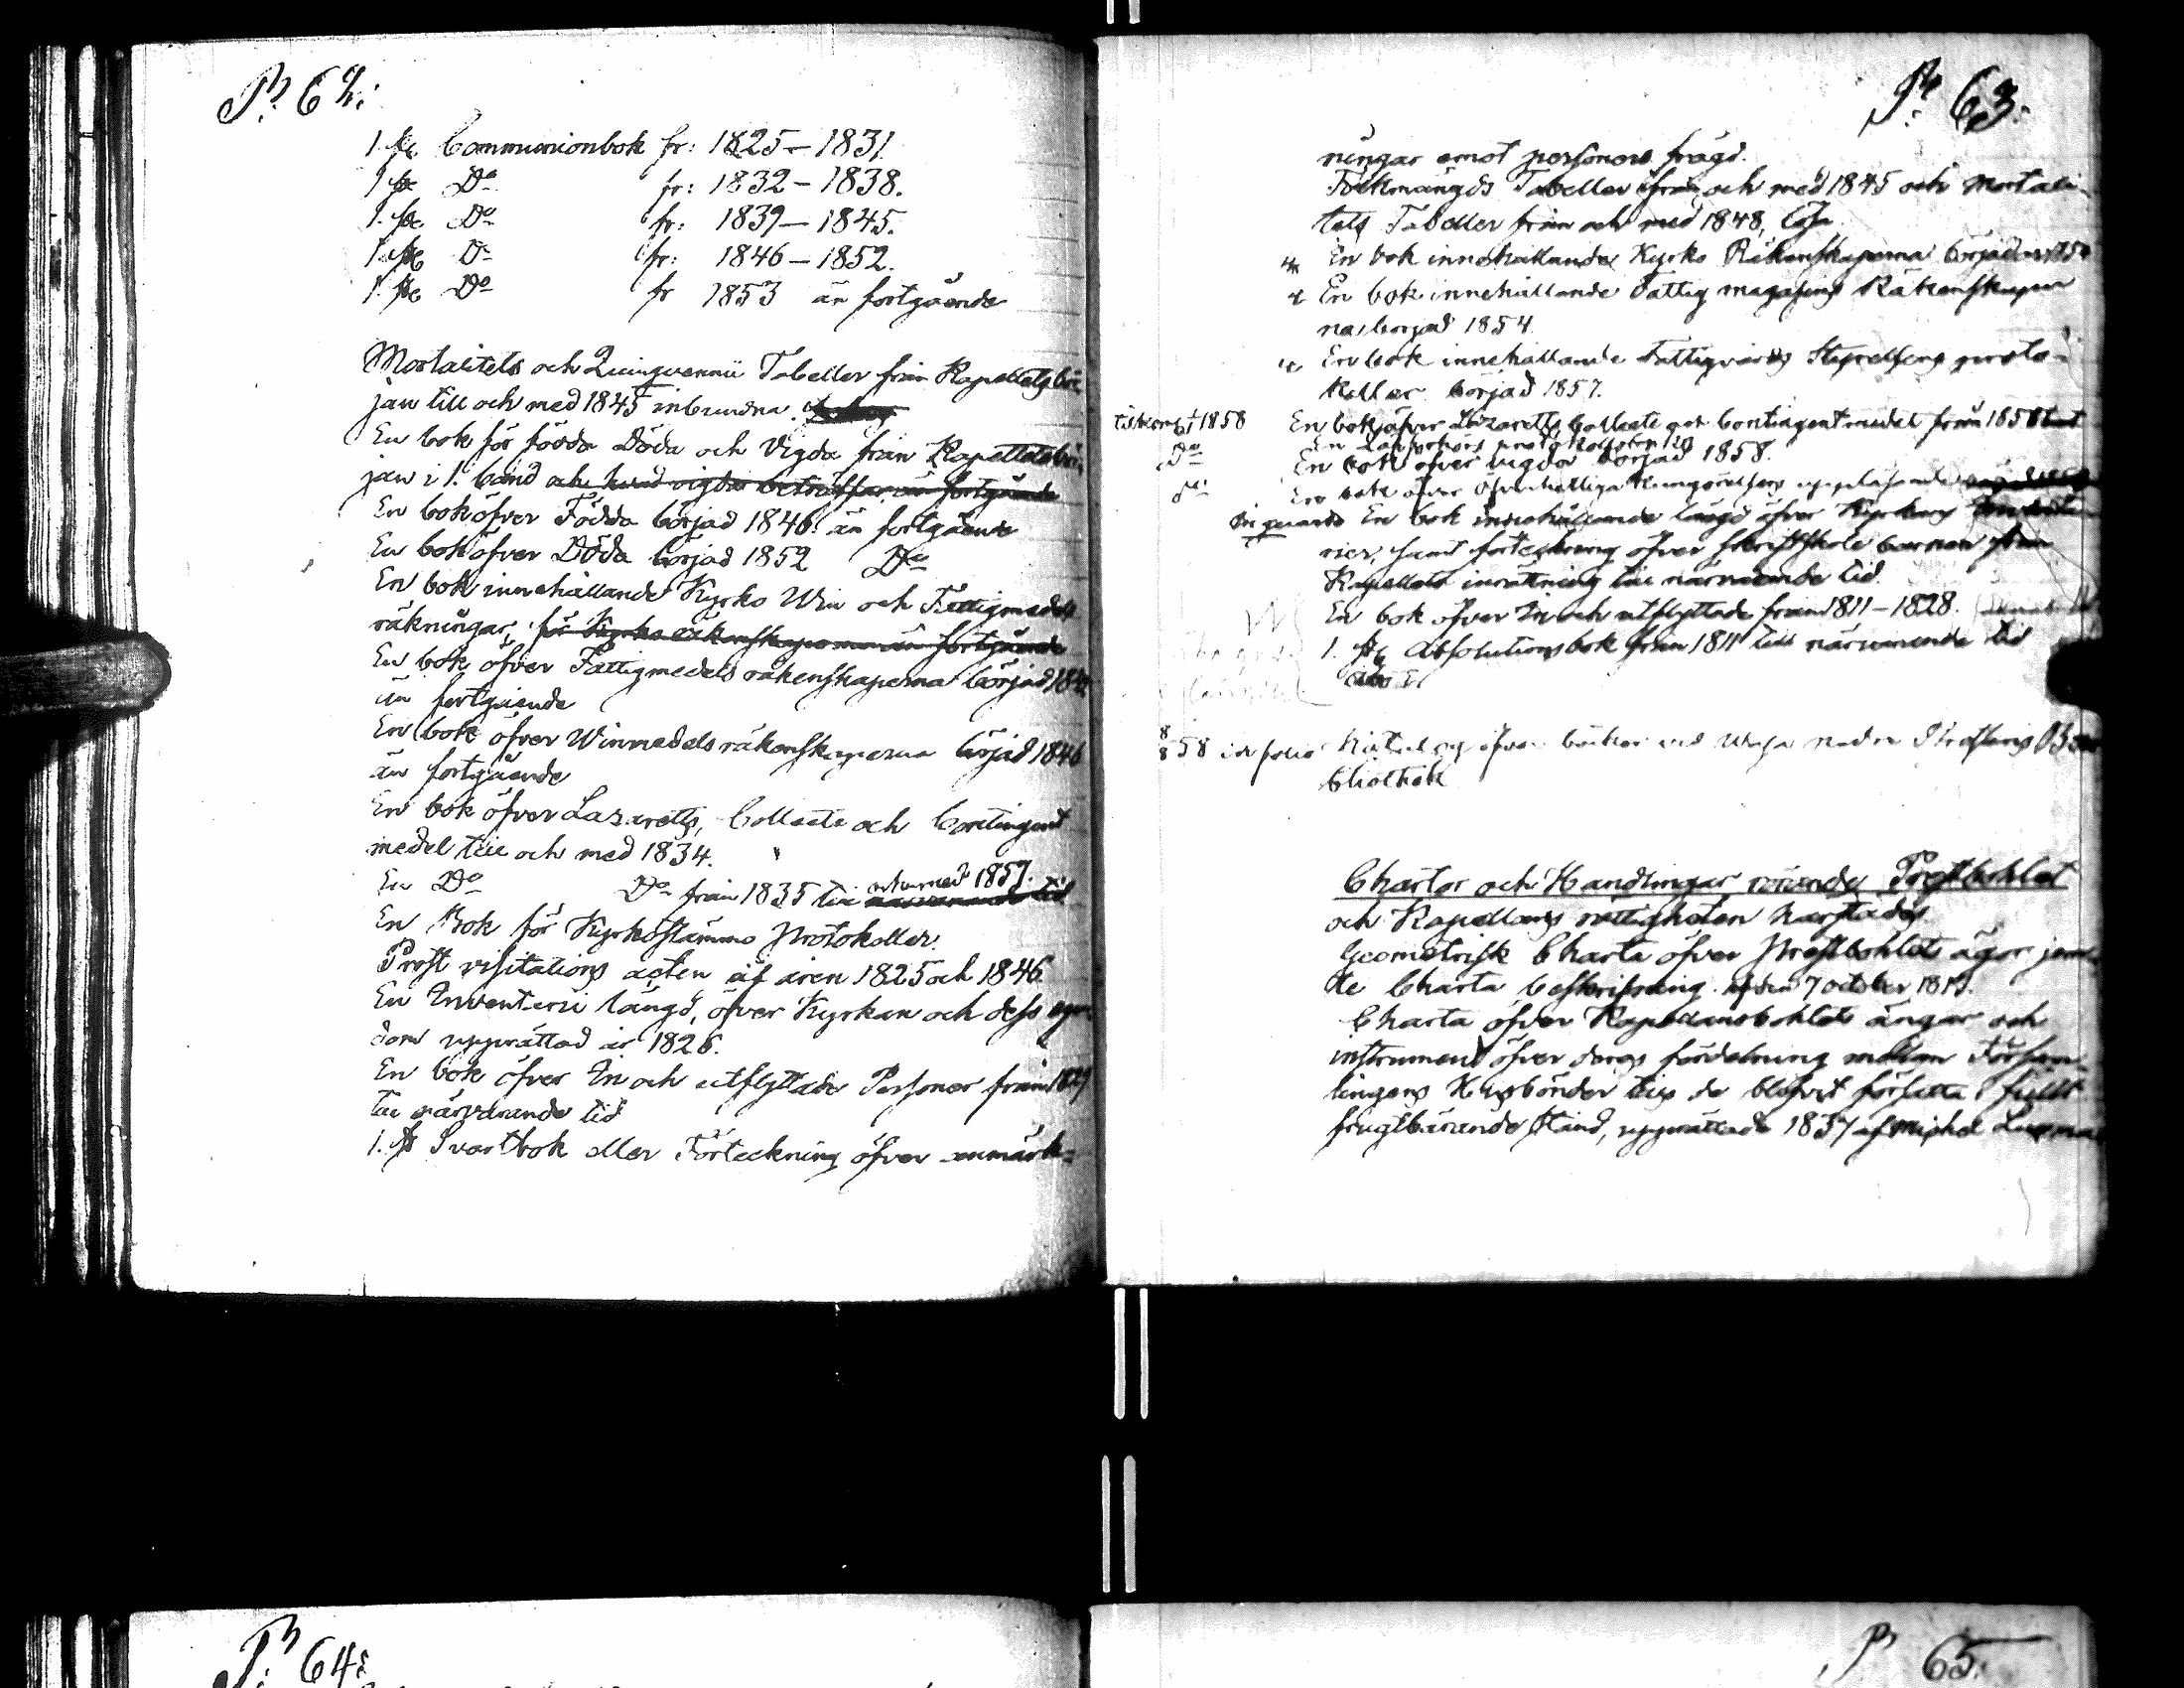 P. 62.
1. st. Communionbok fr: 1825–1831
1 st. Do fr: 1832–1838.
1. st. Do fr: 1839–1845.
1. st. Do fr: 1846–1852.
1. st. Do fr 1853 än fortgående
Mortalitets och Quinquennii Tabeller från Kapellets bör
jan till och med 1845 inbundna.
En bok för födda Döda och Vigda från Kapellets bör
jan i 1. band och hvad vigda beträffar, än fortgående
En bok öfver Födda börjad 1846. än fortgående
En bok öfver Döda börjad 1852 Do
En bok innehållande Kyrko Win och Fattigmedels
räkningar, för Kyrko räkenskaperna än fortgående
En bok öfver Fattigmedels räkenskaperna börjad
än fortgående
En bok öfver Winmedels räkenskaperna börjad 1846
än fortgående
En bok öfver Lazaretts, Collecte och Contingent
medel till och med 1834.
En Do Do från 1835 till och med 1857. närvarande tid
En Bok för Kyrkostämmo Protokoller.
Prost visitations acten af åren 1825 och 1846
En Inventarii längd, öfver Kyrkan och dess egen
dom upprättad år 1826.
En bok öfver In och utflyttade Personer från
till närvarande tid
1. st Svartbok eller Förteckning öfver anmärk=
P. 63.
ningar emot personers frägd.
Folkmängds Tabeller ifrån och med 1845 och Mortali-
tets Tabeller från och med 1848, lösa
En bok innehållande Kyrko Räkenskaperna börjad
En bok innehållande Fattig magasins Räkenskaper
na, börjad 1854.
En bok innehållande Fattigvårds Styrelsens proto-
koller börjad 1857.
1858 En bok öfver Lazaretts Collecte och Contingent medel från 1858
Do En bok öfver vigda börjad 1858.
En bok öfver
En bok innehållande längd öfver Kyrkans
rier, samt förteckning öfver skriftskole barnen från
Kapellets inrättning till närvarande tid.
En bok öfver In och utflyttade från 1811–1828.
1. st. Absolutions bok från 1811 till närvarande tid
8/8 58 in folio Katalog öfver böcker vid nedre Prosteriets
bliothek
Chartor och Handlingar rörande Prestbohlet
och Kapellans rättigheten härstädes
Geometrisk Charta öfver Prestbohlets ägor jem
te Charta beskrifning. af den 7 october
Charta öfver Kapellansbohlets ängar och
instrument öfver deras fördelning mellan Försam-
lingens Husbönder tills de blifvit försatta i fullt
frugtbärande stånd, upprättade 1837 af Michel
P. 64:
P 65.